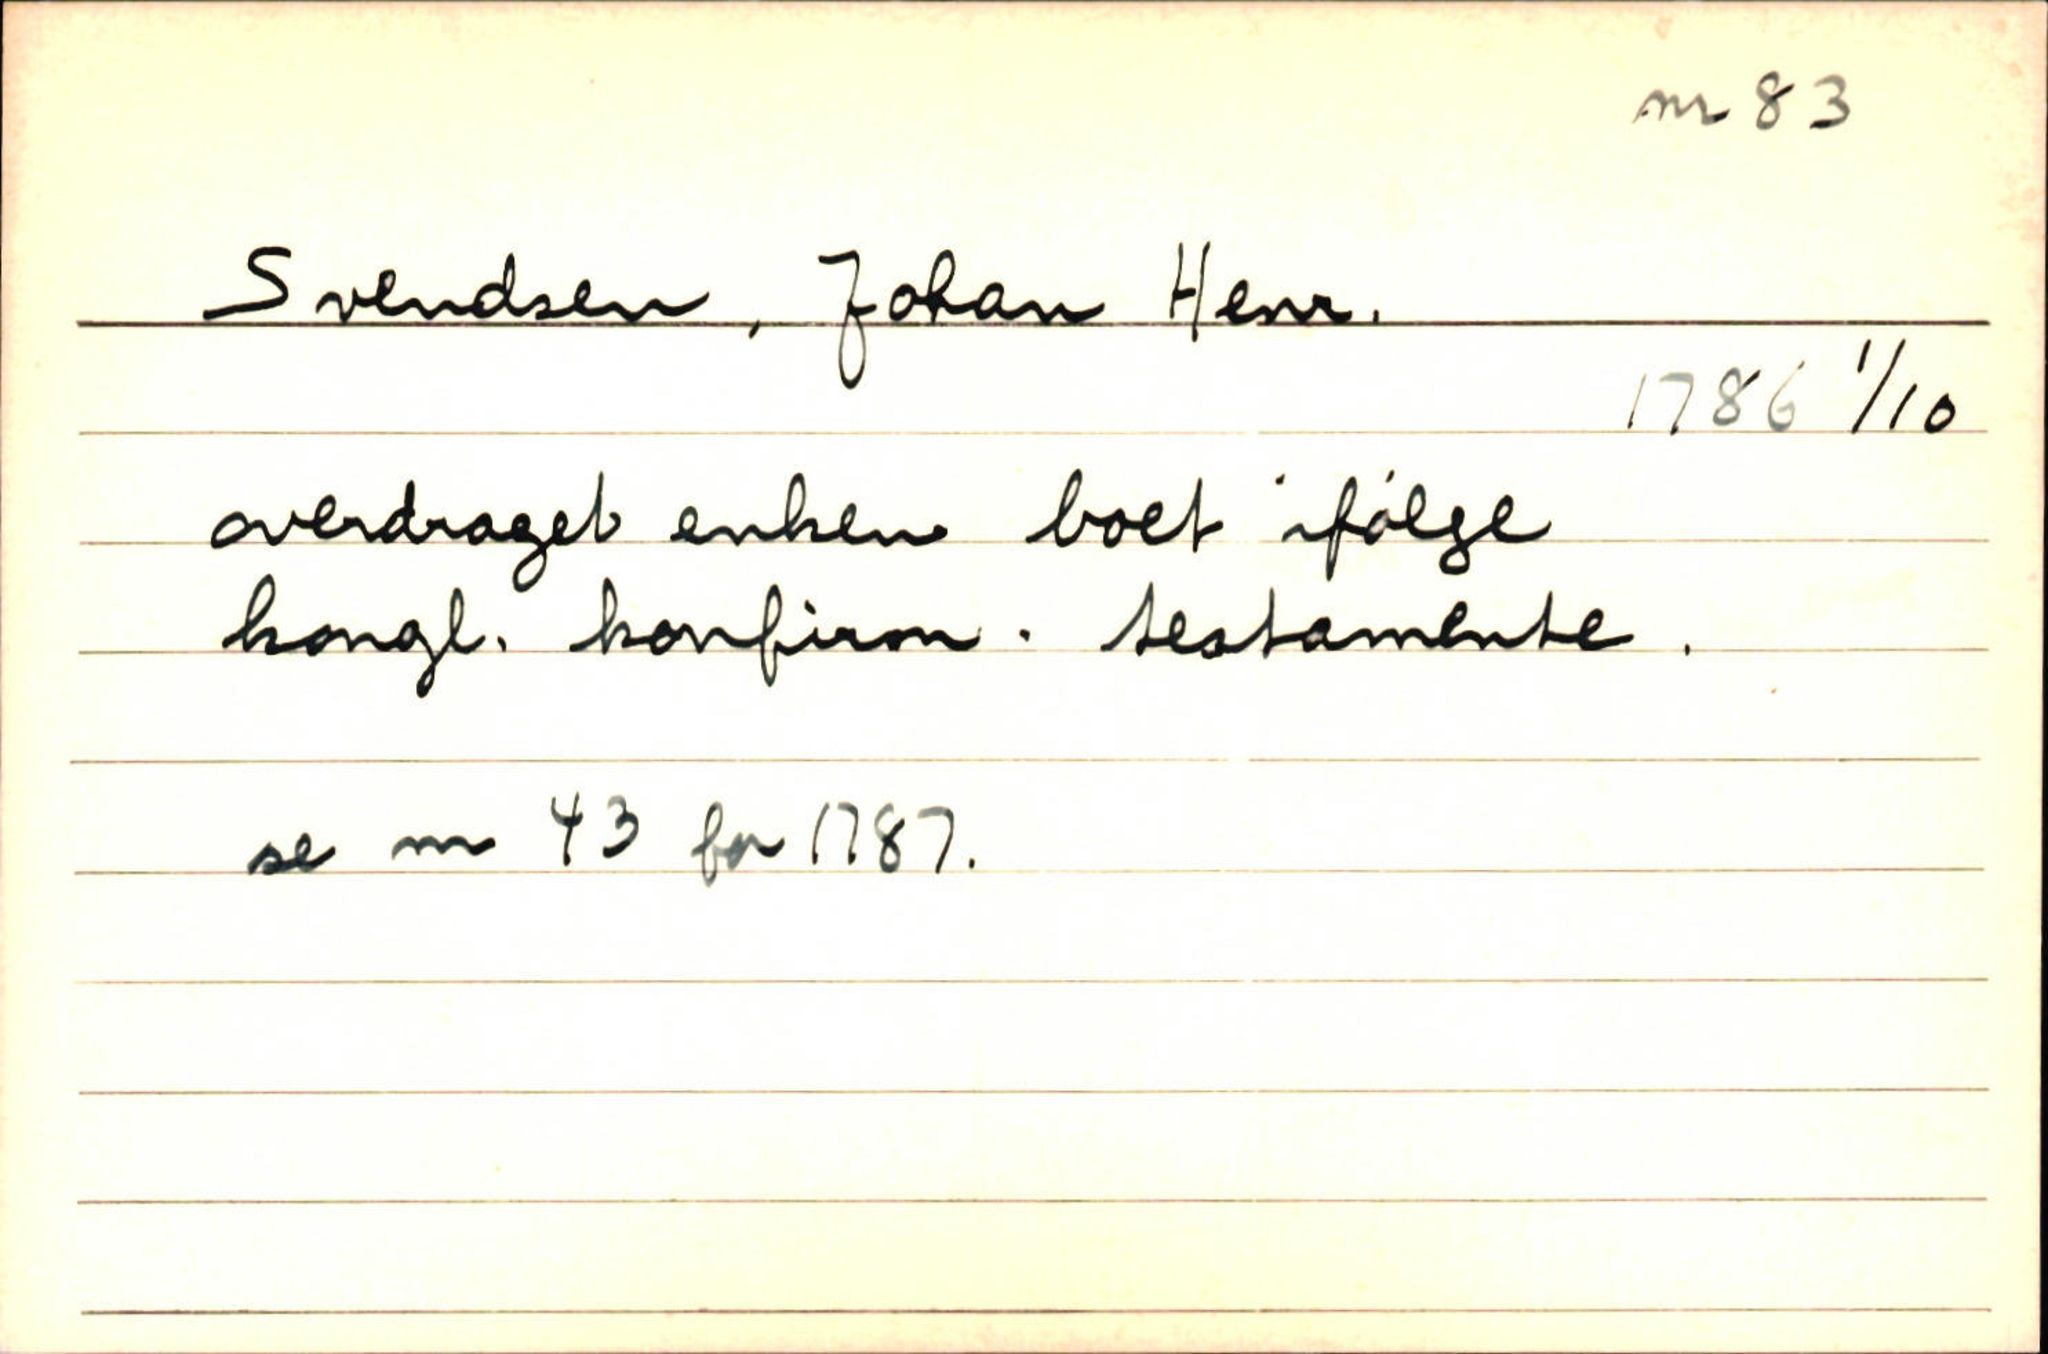 nr 83
Svendsen, Johan Henr.
1786 1/10
overdraget enken boet ifølge
kongl. konfirm. testamente.
se nr 43 for 1787.